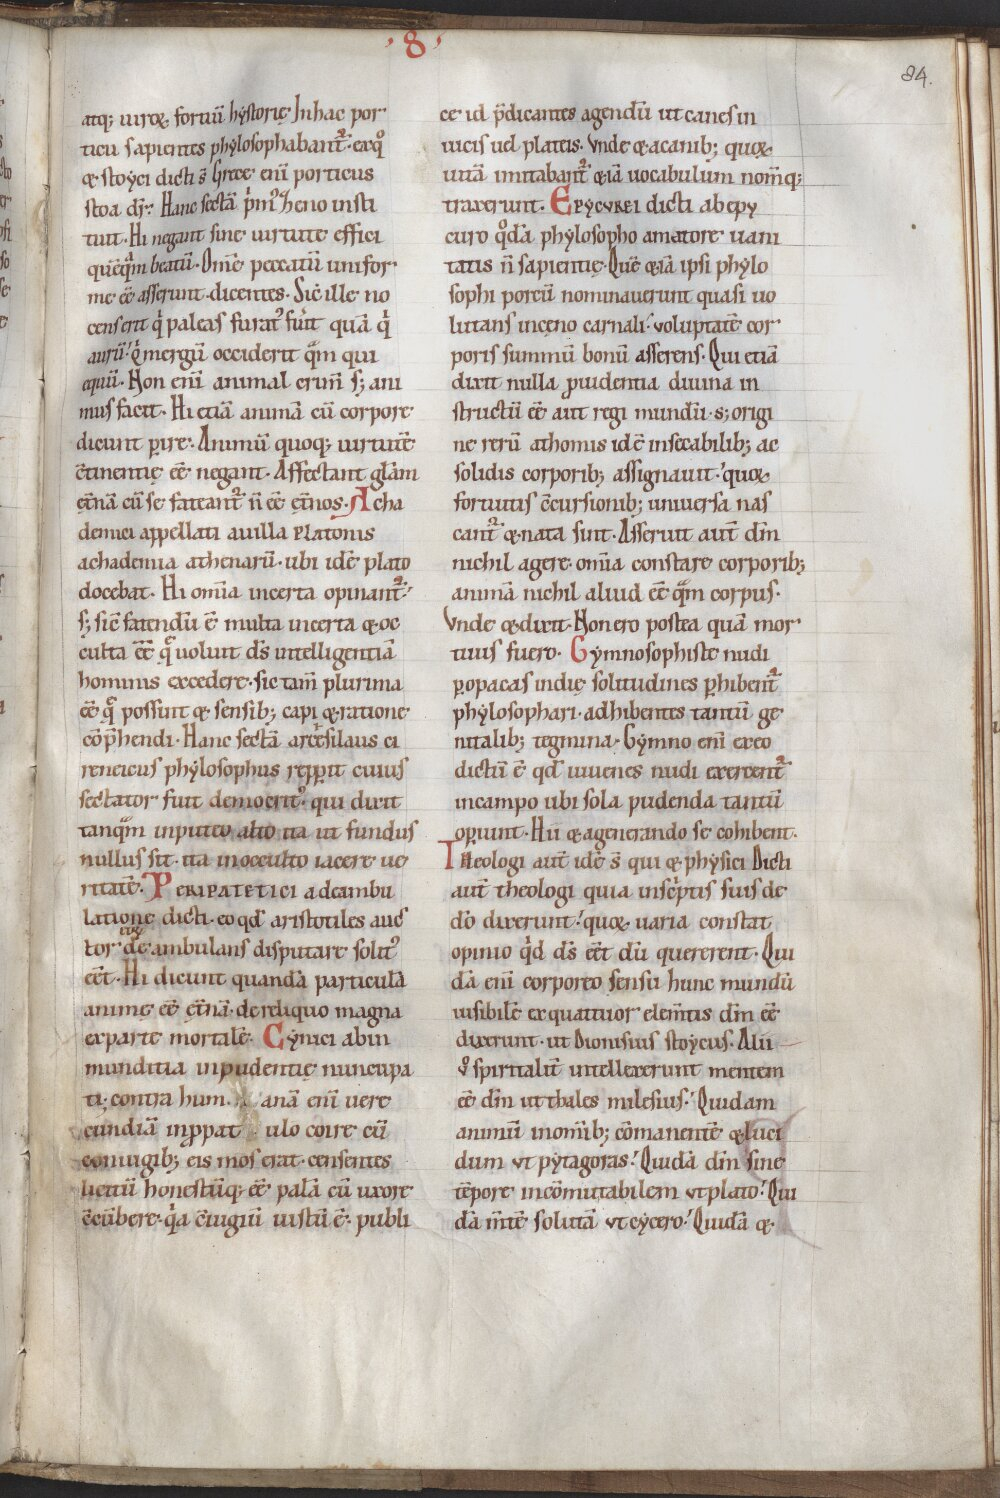 ·8·
84.
atq; uirox fortiũ hystorię In hac por
ticu sapientes phylosophabant᷑· ex qͦ
& stoyci dicti s̃ Grece eni͂ porticus
stoa dr̃. Hanc sectã p̓m᷒ heno insti
tuit· Hi negant sine uirtute effici
quẽq̃m beatũ· Om̃e peccatũ unifor
me eẽ asserunt· dicentes· Sic̃ ille no
cens erit q̓ paleas furat᷒ fu͂it quã q̓
aurũ· q̓ mergũ occiderit q̃m qui
equũ· Non eni͂ animal crim̃ s; ani
mus facit· Hi etiã animã cũ corpore
dicunt p̱ire· Animũ quoq; uirtutẽ
c̃tinentię eẽ negant· Affectant gl̃am
et̃nã cũ se fateant᷑ ñ eẽ et̃nos· Acha
demici appellati a uilla PLatonis
achademia athenarũ· ubi idẽ plato
docebat· Hi om̃ia incerta opinant᷑·
s; sic̃ fatendũ ẽ multa incerta & oc
culta eẽ q̃ uoluit d̃s intelligentiã
hominis excedere· sic tam̃ plurima
eẽ q̃ possint & sensib; capi & ratione
cõp̃hendi· Hanc sectã arcesilaus ci
reneicus phylosophus rep̱p̱it cuius
sectator fuit democrit᷒· qui dixit
tanq̃m in puteo alto ita ut fundus
nullus sit· ita in occulto iacere ue
ritatẽ· PERIPATETICI a deambu
latione dicti· eo qd̃ aristotiles auc
tor eius deambulans disputare solit᷒
eẽt· Hi dicunt quandã particulã
animę eẽ et̃nã· de reliquo magna
ex parte mortalẽ· Cynici ab in
munditia inpudentię nuncupa
ti; contra hum anã eni͂ uere
cundiã in p̱pat ulo coire cũ
coniugib; eis mos erat· censentes
licitũ honestũq; eẽ palã cũ uxore
c̃cũbere· q̓a c̃iugiũ iustũ ẽ· publi
ce id p̃dicantes agendũ ut canes in
uicis uel plateis· Vnde & a canib; quox
uitã imitabant᷑ & iã uocabulum nom̃q;
traxerunt· EPYCUREI dicti ab epy
curo qͦdã phylosopho amatore uani
tatis ñ sapientię· Quẽ & iã ipsi phylo
sophi porcũ nominauerunt quasi uo
lutans in ceno carnali· uoluptatẽ cor
poris summũ bonũ asserens· Qui etiã
dixit nulla p̱uidentia diuina in
structũ eẽ aut regi mundũ· s; origi
nẽ rerũ athomis id ẽ insecabilib; ac
solidis corporib; assignauit· quox
fortuitis c̃cursionib; uniuersa nas
cant᷑ & nata sint· Asserunt aut̃ dm̃
nichil agere· om̃ia constare corporib;
animã nichil aliud eẽ q̃m corpus·
Vnde & dixit· Non ero postea quã mor
tuus fuero· Gymnosophistę nudi
p̱ opacas indię solitudines p̱hibent᷑
phylosophari· adhibentes tantũ ge
nitalib; tegmina· Gymno eni͂ ex eo
dictũ ẽ qd̃ iuuenes nudi exercent᷑
in campo ubi sola pudenda tantũ
op̱iunt· Hii & a generando se cohibent·
Theologi aut̃ idẽ s̃ qui & physici Dicti
aut̃ theologi quia in sc̓ptis suis de
dõ dixerunt· quox uaria constat
opinio q̓d d̃s eẽt dũ quererent· Qui
dã eni͂ corporeo sensu hunc mundũ
uisibilẽ ex quattuor elem̃tis dm̃ eẽ
dixerunt· ut Dionisius stoycus· Alii
ṽ spiritalit̃ intellexerunt mentem
eẽ dm̃ ut thales milesius· Quidam
animũ in om̃ib; cõmanentẽ & luci
dum ut pytagoras· Quidã dm̃ sine
tẽpore incõmutabilem ut plato· Qui
dã m̃tẽ solutã ut cycero· Quidã &